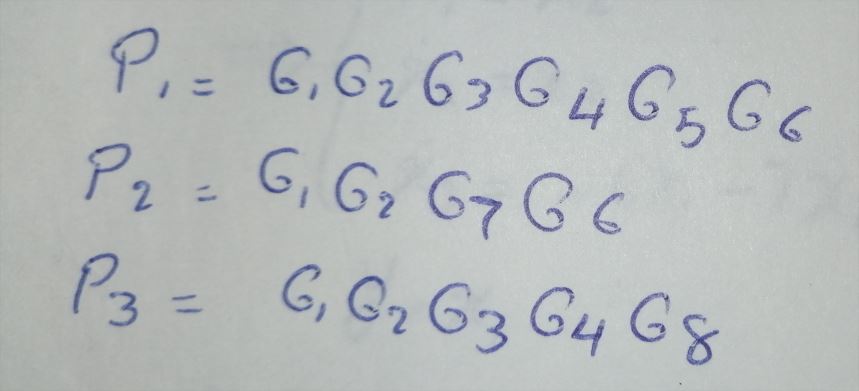 P₁ = G₁ G₂ G₃ G₄ G₅ G₆
P₂ = G₁ G₂ G₇ G₆
P₃ = G₁ G₂ G₃ G₄ G₈